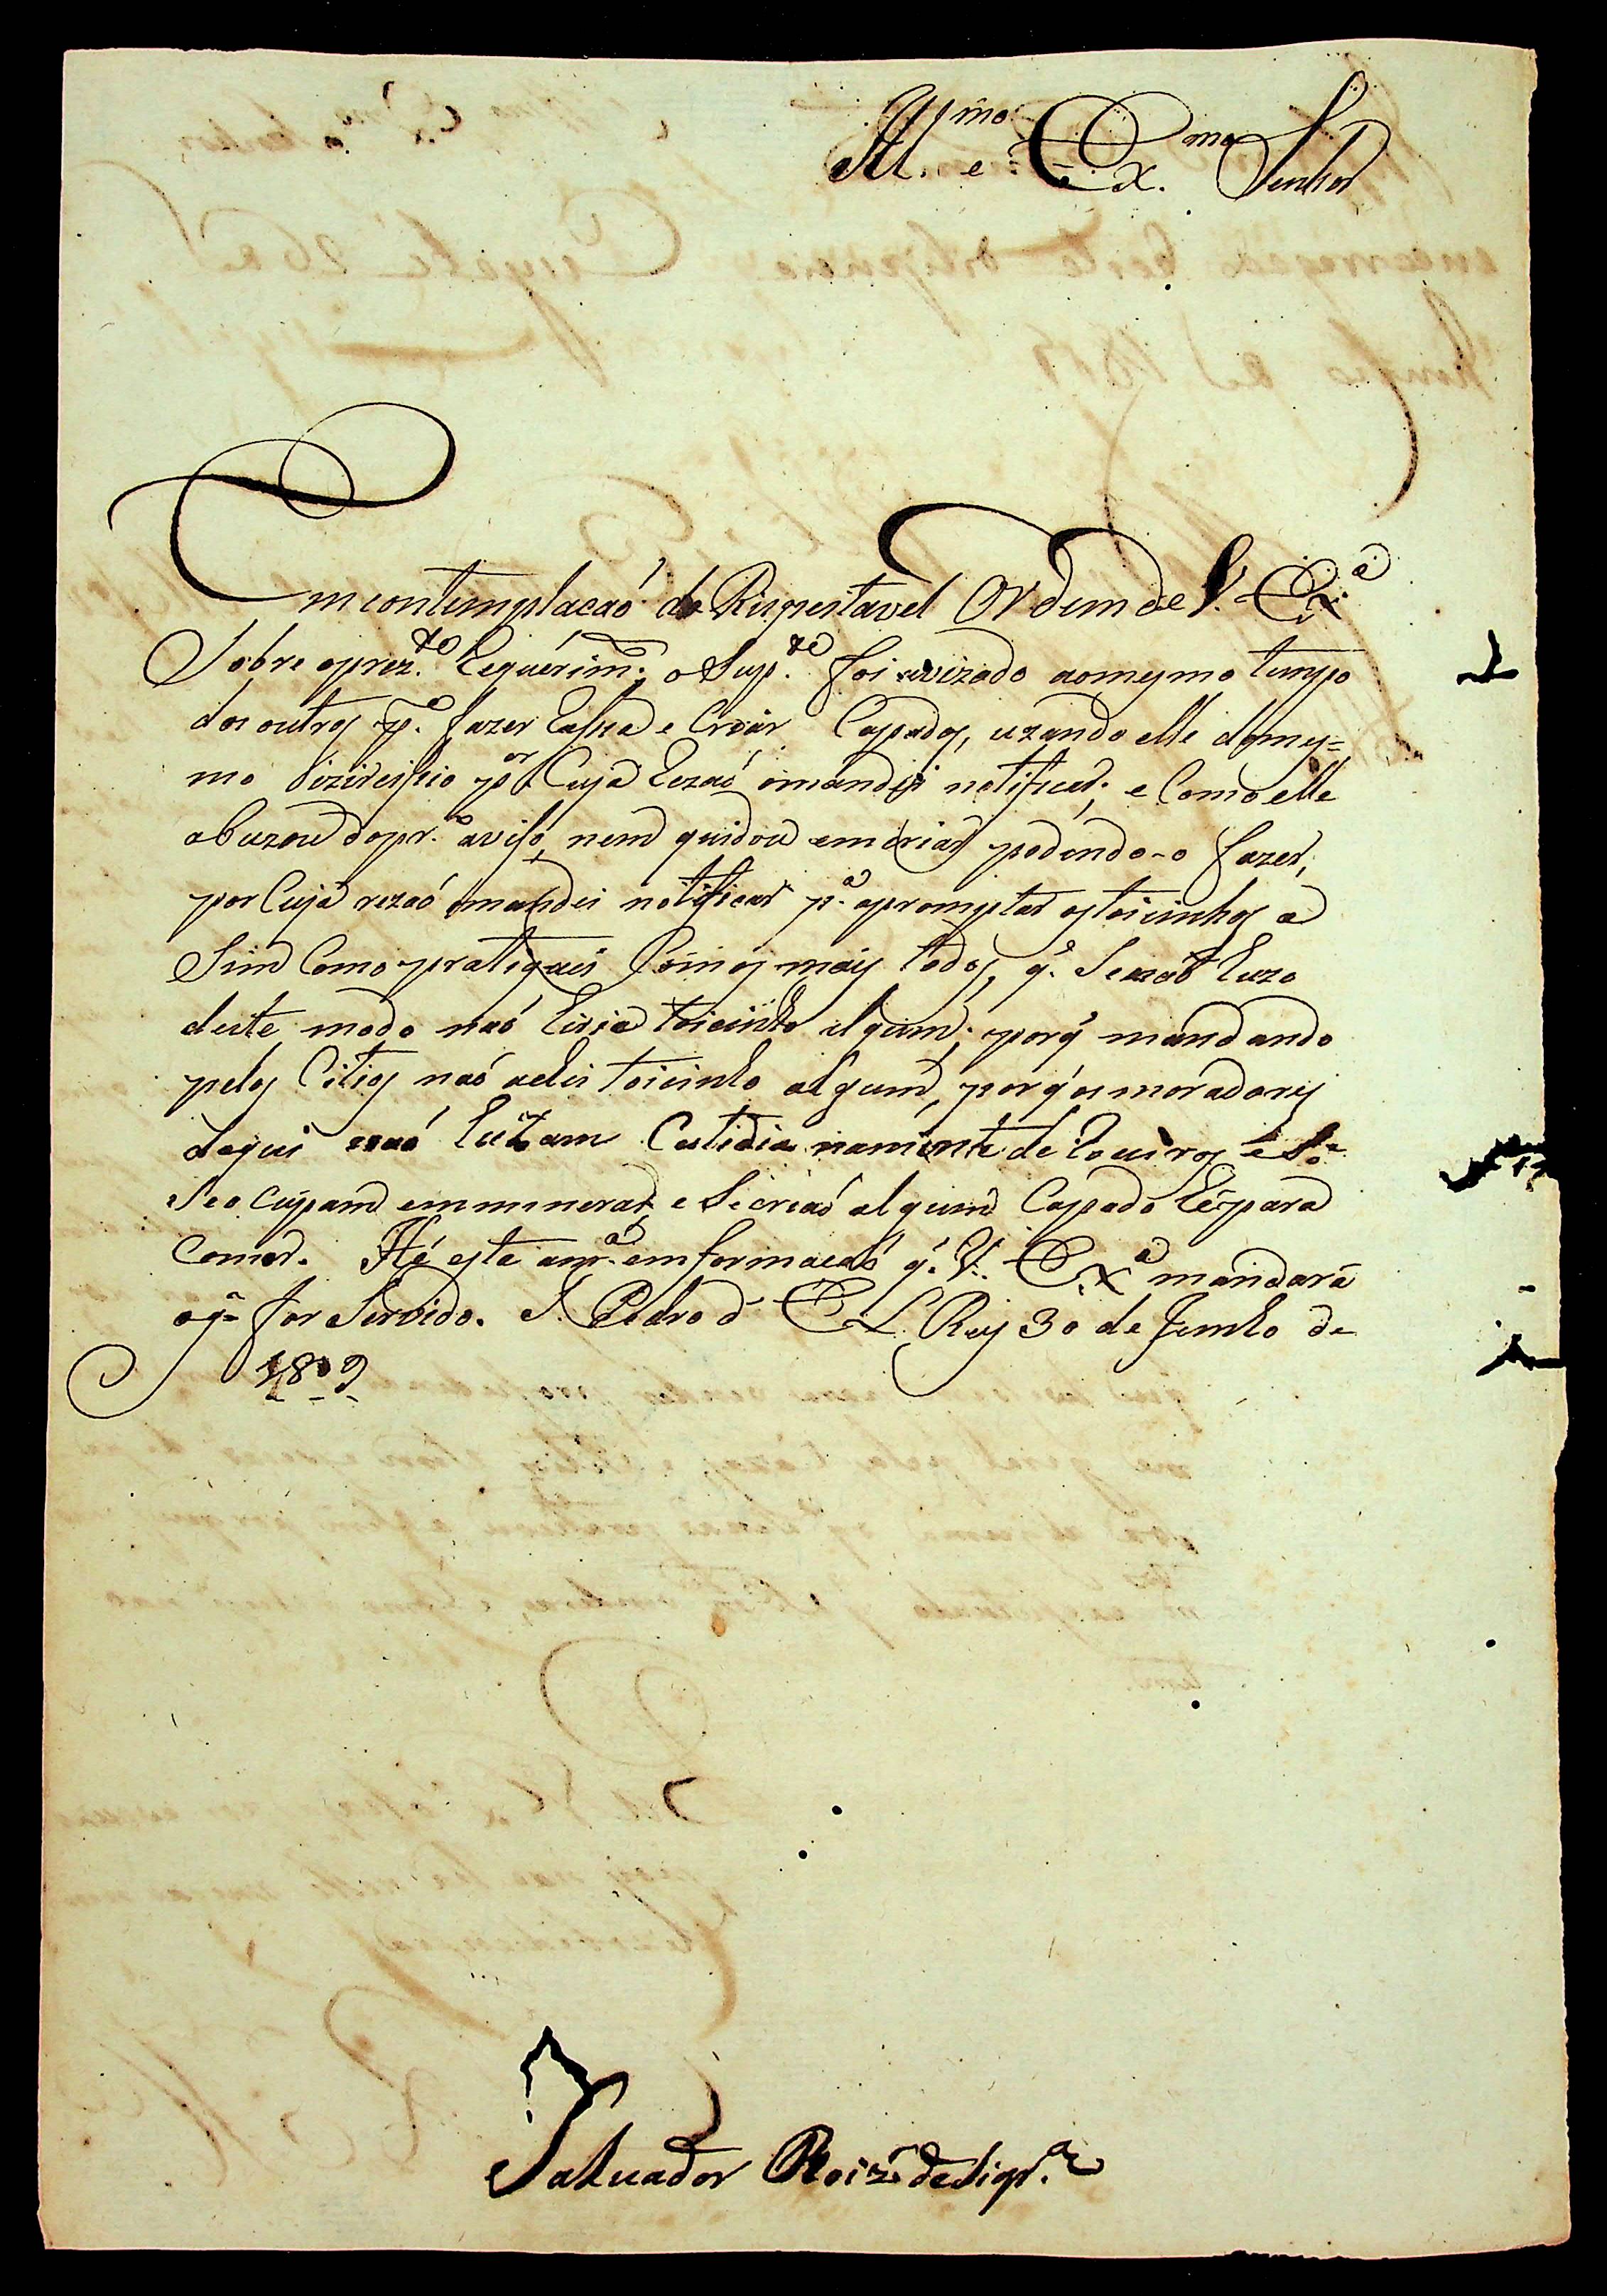 Ill.mo e Ex.mo Senhor
Em contemplacaó da Respeitavel Ordem de V. Ex.a
Sobre oprez.te Requerim.to, o Sup.te foi avizado aomesmo tempo
dos outros p.a fazer e Criar Capados, uzando elle domes=
mo p.or Cuja Rezaó omandei notificar; e Como elle
abuzou dopr.o avizo, nem quidou emcriar podendo-o fazer,
por Cuja rezaó omandei notificar p.a apromptar ostoicinhos a
Sim Como pratiquei Comos mais todos, q.' Senaó Euzo
deste modo naó teria toicinho algum; porq' mandando
pelos Citios naó achei toicinho algum, porq' os moradores
daqui naó tratam Cutidianamente de e So
Seocupam emminerar, e Secriaó algum Capado hépara
Comer. Hé esta am.a emformacaó q'. V. Ex.a mandará
oq' for Servido. S. Pedro d' El Rey 30 de Junho de
1809
Saluador Roiz' de Siqr.a